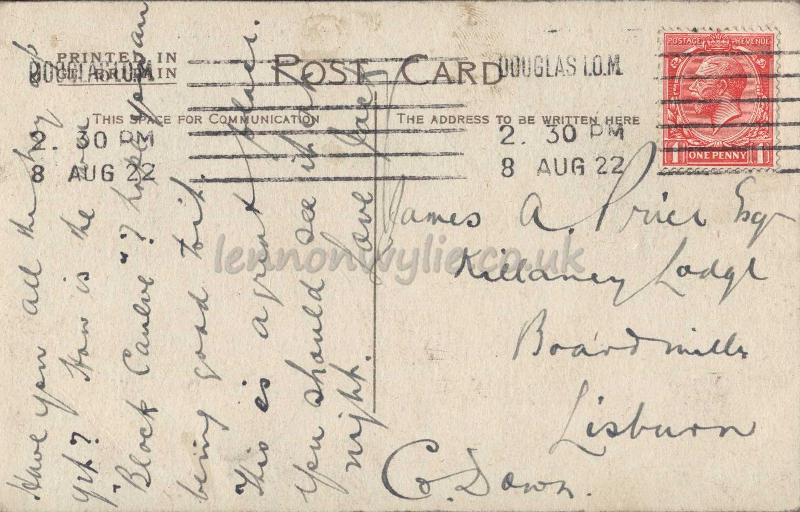 PRINTED IN
GT. BRITAIN
POST CARD
THIS SPACE FOR COMMUNICATION
THE ADDRESS TO BE WRITTEN HERE
DOUGLAS I.O.M.
2. 30 PM
8 AUG 22
DOUGLAS I.O.M.
2. 30 PM
8 AUG 22
POSTAGE REVENUE
1 ONE PENNY 1
Have you all the hay up
yet? How is the wee
"Block Caulve"? hope you are
being good to it.
This is a great place.
You should see it at
night. Love Jack
James A. Price Esq
Killaney Lodge
Boardmills
Lisburn
Co. Down.
lennonwylie.co.uk